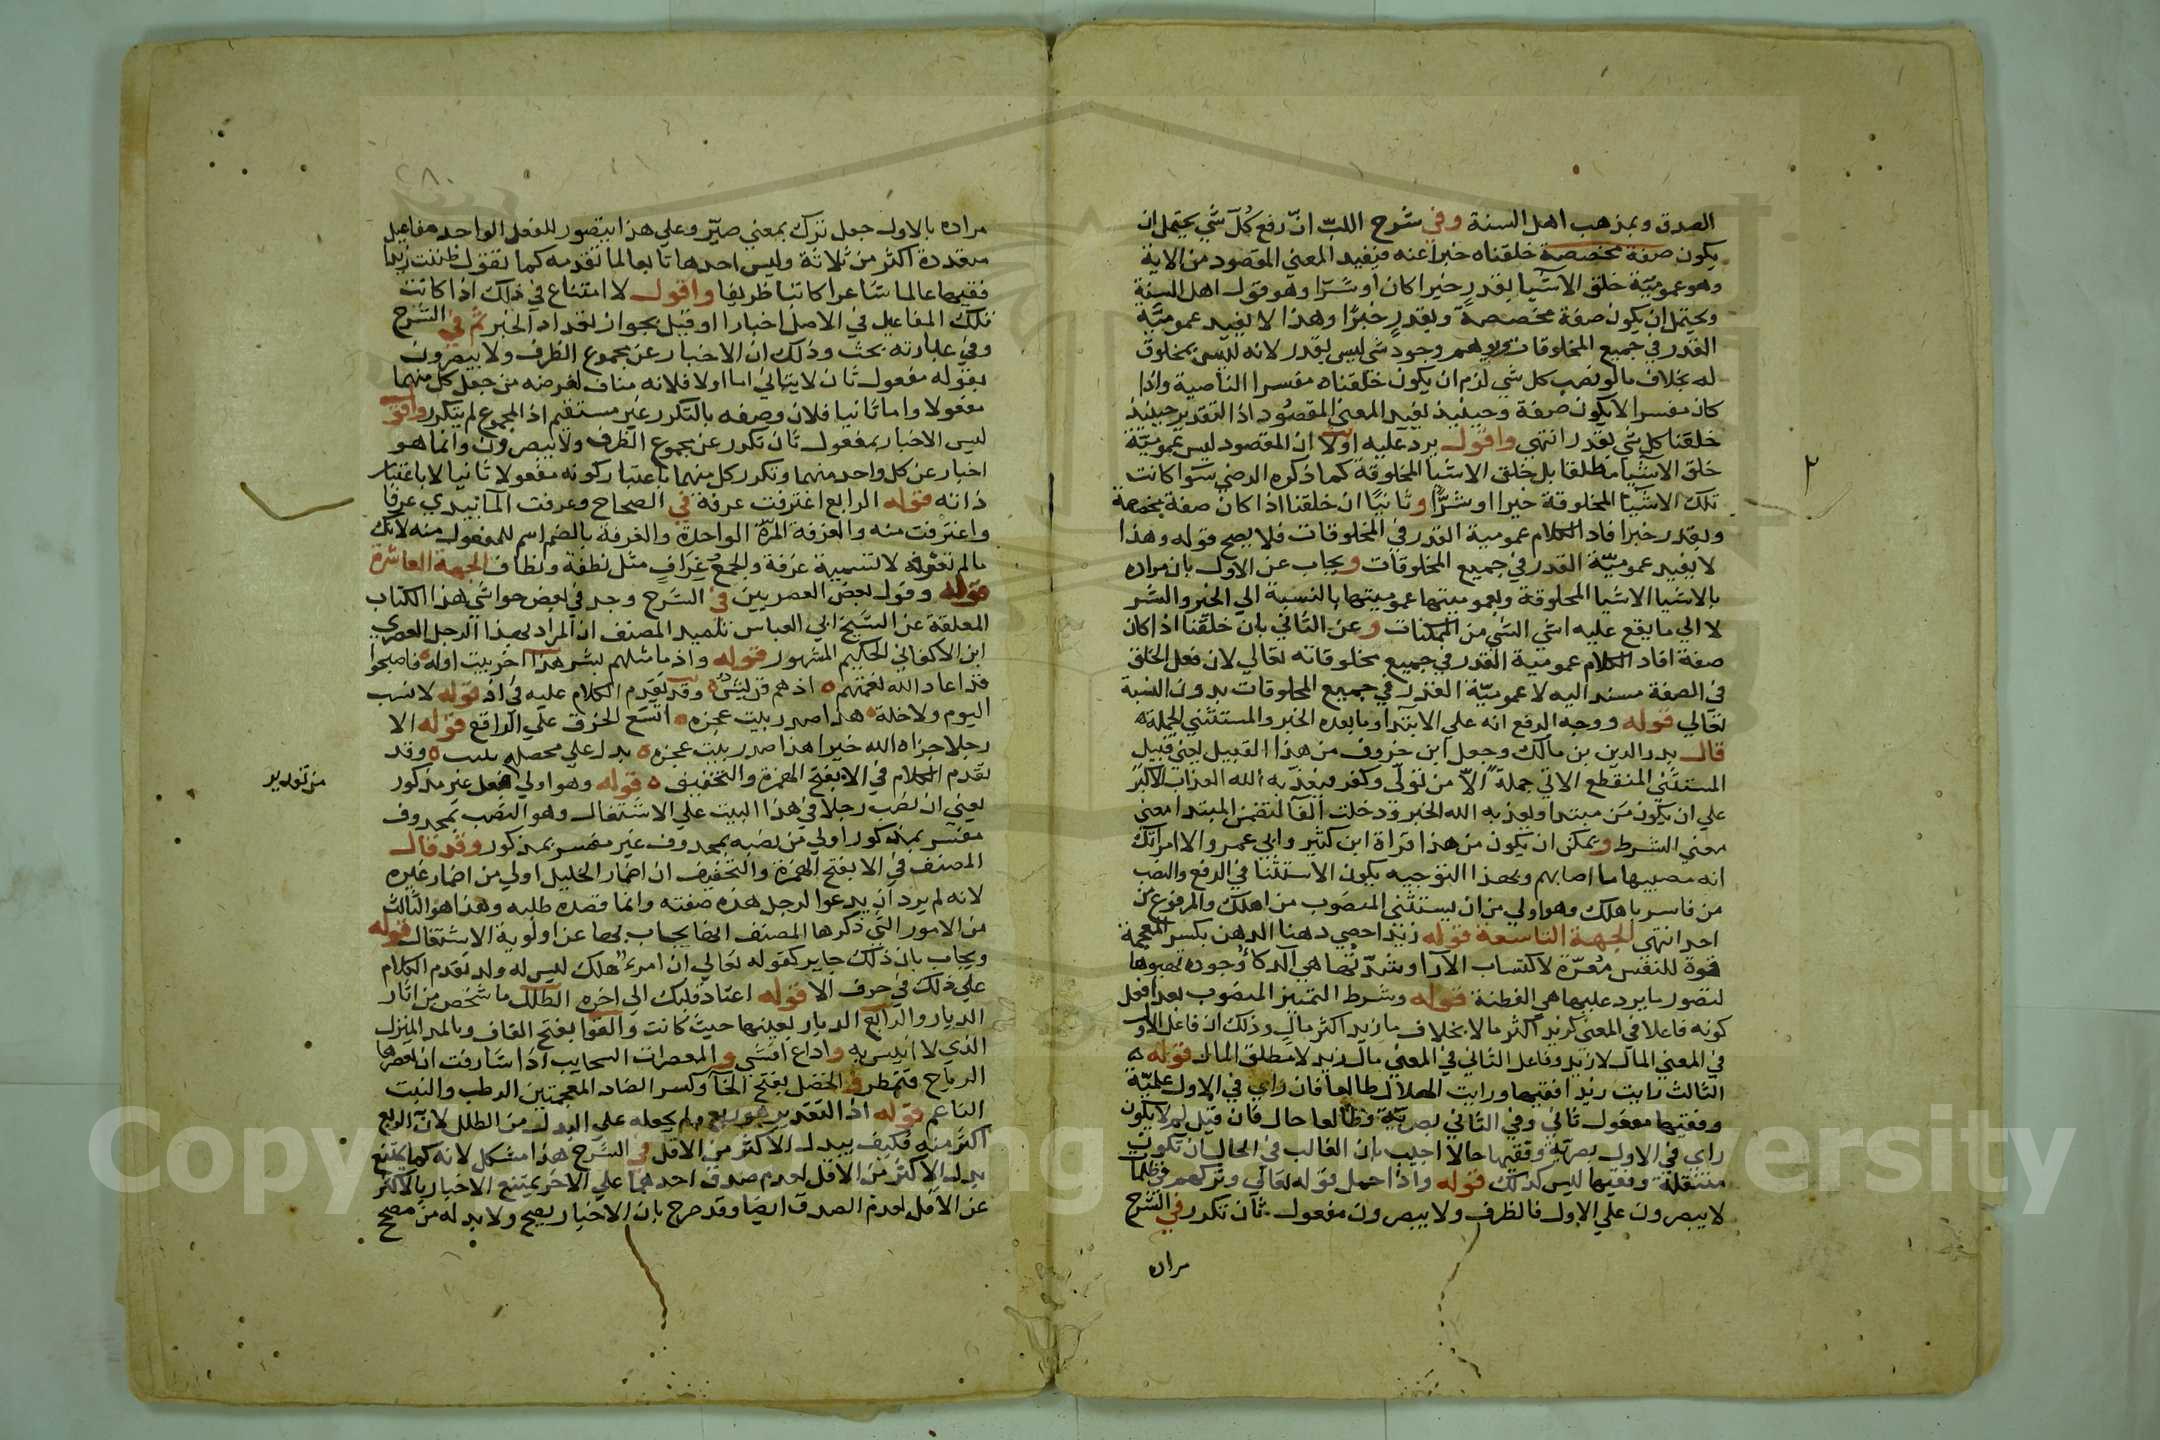 الصدق وبمذهب اهل السنة وفي شرح اللب ان رفع كل شي يحتمل ان
يكون صفة مخصصة خلقناه خبرا عنه فيفيد المعني المقصود من الاية
وهو عمومية خلق الاشيا بقدر خيرا كان او شرا وهو قول اهل السنة
ويحتمل ان يكون صفة مخصصة وبقدر خبرا وهذا لا يفيد عمومية
القدر في جميع المخلوقات ويوهم وجود شي ليس بقدر لانه ليس بمخلوق
له بخلاف ما لو نصب كل شي لزم ان يكون خلقناه مفسرا الناصبه واذا
كان مفسرا لا يكون صفة وحينئذ يفيد المعني المقصود اذ التقدير حينئذ
خلقنا كل شي بقدر انتهي واقول يرد عليه اولا ان المقصود ليس عمومية
خلق الاشيا مطلقا بل خلق الاشيا المخلوقة كما ذكره الرضي سوا كانت
تلك الاشيا المخلوقة خيرا او شرا وثانيا ان خلقنا اذا كان صفة مخصصة
وبقدر خبرا افاد الكلام عمومية القدر في المخلوقات فلا يصح قوله وهذا
لا يفيد عمومية القدر في جميع المخلوقات ويجاب عن الاول بان مراده
بالاشيا الاشيا المخلوقة وبعموميتها عموميتها بالنسبة الي الخير والشر
لا الي ما يقع عليه اسم الشي من الممكنات وعن الثاني بان خلقنا اذا كان
صفة افاد الكلام عمومية القدر في جميع مخلوقاته تعالي لان فعل الخلق
في الصفة مسند اليه لا عمومية القدر في جميع المخلوقات بدون النسبة
تعالي قوله ووجه الرفع انه علي الابتدا وما بعده الخبر والمستثني الجملة
قال بدر الدين بن مالك وجعل ابن خروف من هذا القبيل يعني قبيل
المستثني المنقطع الاتي جملة الا من تولي وكفر فيعذبه الله العذاب الاكبر
علي ان يكون من مبتدا ويعذبه الله الخبر ودخلت الفا لتضمن المبتدا معني
معني الشرط ويمكن ان يكون من هذا قراة ابن كثير وابي عمرو الا امراتك
انه مصيبها ما اصابهم وبهذا التوجيه يكون الاستثنا في الرفع والنصب
من فاسر باهلك وهو اولي من ان يستثني المنصوب من اهلك والمرفوع من
احد انتهي الجهة التاسعة قوله زيد احصي ذهنا الذهن بكسر المعجمة
قوة للنفس معدة لاكتساب الآرا وشدتها هي الذكا وجوده تهيوها
لتصور ما يرد عليها هي الفطنة قوله وشرط التمييز المنصوب بعد افعل
كونه فاعلا في المعني كزيد اكثر مالا بخلاف ما زيد اكثر مال وذلك ان فاعل الاول
في المعني المال لا زيد وفاعل الثاني في المعني مال زيد لا مطلق المال قوله
الثالث رايت زيدا فقيها ورايت الهلال طالعا فان راي في الاول علمية
وفقيها مفعول ثاني وفي الثاني بصرية وطالعا حال فان قيل لم لا يكون
راي في الاول بصرية وفقيها حالا اجيب بان الغالب في الحال ان تكون
منتقلة وفقيها ليس كذلك قوله واذا حمل قوله تعالي وتركهم في ظلمات
لا يبصرون علي الاول فالظرف ولا يبصرون مفعول ثان تكرر في الشرح
مراده
٢
٢٨٠
مراده بالاول جعل ترك بمعني صير وعلي هذا يتصور للفعل الواحد مفاعيل
متعددة اكثر من ثلاثة وليس احدها تابعا لما تقدمه كما تقول ظننت زيدا
فقيها عالما شاعرا كاتبا ظريفا واقول لا امتناع في ذلك اذا كانت
تلك المفاعيل في الاصل اخبارا او قيل بجواز تعداد الخبر ثم في الشرح
وفي عبارته بحث وذلك ان الاخبار عن مجموع الظرف ولا يبصرون
بقوله مفعول ثان لا يتاتي اما اولا فلانه مناف لغرضه من جعل كل منهما
مفعولا واما ثانيا فلان وصفه بالتكرر غير مستقيم اذ المجموع لم يتكرر واقول
ليس الاخبار بمفعول ثان تكرر عن مجموع الظرف ولا يبصرون وانما هو
اخبار عن كل واحد منهما وتكرر كل منهما باعتبار كونه مفعولا ثانيا لا باعتبار
ذاته قوله الرابع اغترفت غرفة في الصحاح وغرفت الما بيدي غرفا
واغترفت منه والغرفة المرة الواحدة والغرفة بالضم اسم للمفعول منه لانك
ما لم تغرفه لا تسميه غرفة والجمع غراف مثل نطفة ونطاف الجهة العاشرة
قوله وقول بعض العصريين في الشرح وجد في بعض حواشي هذا الكتاب
المعلقة عن الشيخ ابي العباس تلميذ المصنف ان المراد بهذا الرجل العصري
ابن الاكفاني الحكيم المشهور قوله واذ ما مثلهم بشر هذا اخر بيت اوله فاصبحوا
قد اعاد الله نعمتهم اذ هم قريش وقد تقدم الكلام عليه في اذ قوله لا نسب
اليوم ولا خلة هذا صدر بيت عجزه اتسع الخرق علي الراقع قوله الا
رجلا جزاه الله خيرا هذا صدر بيت عجزه يدل علي محصلة تبيت وقد
تقدم الكلام في الا بفتح الهمزة والتخفيف قوله وهو اولي من تقدير فعل غير مذكور
يعني ان نصب رجلا في هذا البيت علي الاشتغال وهو النصب بمحذوف
مفسر بمذكور اولي من نصبه بمحذوف غير مفسر بمذكور وقد قال
المصنف في الا بفتح الهمزة والتخفيف ان اضمار الخليل اولي من اضمار غيره
لانه لم يرد ان يدعو لرجل هذه صفته وانما قصده طلبه وهذا هو الثالث
من الامور التي ذكرها المصنف انها يجاب بها عن اولوية الاشتغال قوله
ويجاب بان ذلك جايز كقوله تعالي ان امرء هلك ليس له ولد تقدم الكلام
علي ذلك في حرف الا قوله اعتاد قلبك الي اخره الطلل ما شخص من اثار
الديار والرابع الديار بعينها حيث كانت والقوا بفتح القاف وبالمد المنزل
الذي لا انيس به واذاع افشي والمعصرات السحايب اذا شارفت ان تعصرها
الرياح فتمطر في الخضل بفتح الخا وكسر الضاد المعجمتين الرطب والنبت
الناعم قوله اذ التقدير هو ربع ولم يجعله علي البدل من الطلل لان الربع
اكثر منه فكيف يبدل الاكثر من الاقل في الشرح هذا مشكل لانه كما يمتنع
بدل الاكثر من الاقل لعدم صدق احدهما علي الاخر يمتنع الاخبار بالاكثر
عن الاقل لعدم الصدق ايضا وقد صرح بان الاخبار يصح ولا بد له من مصحح
من تقدير
Copy King University